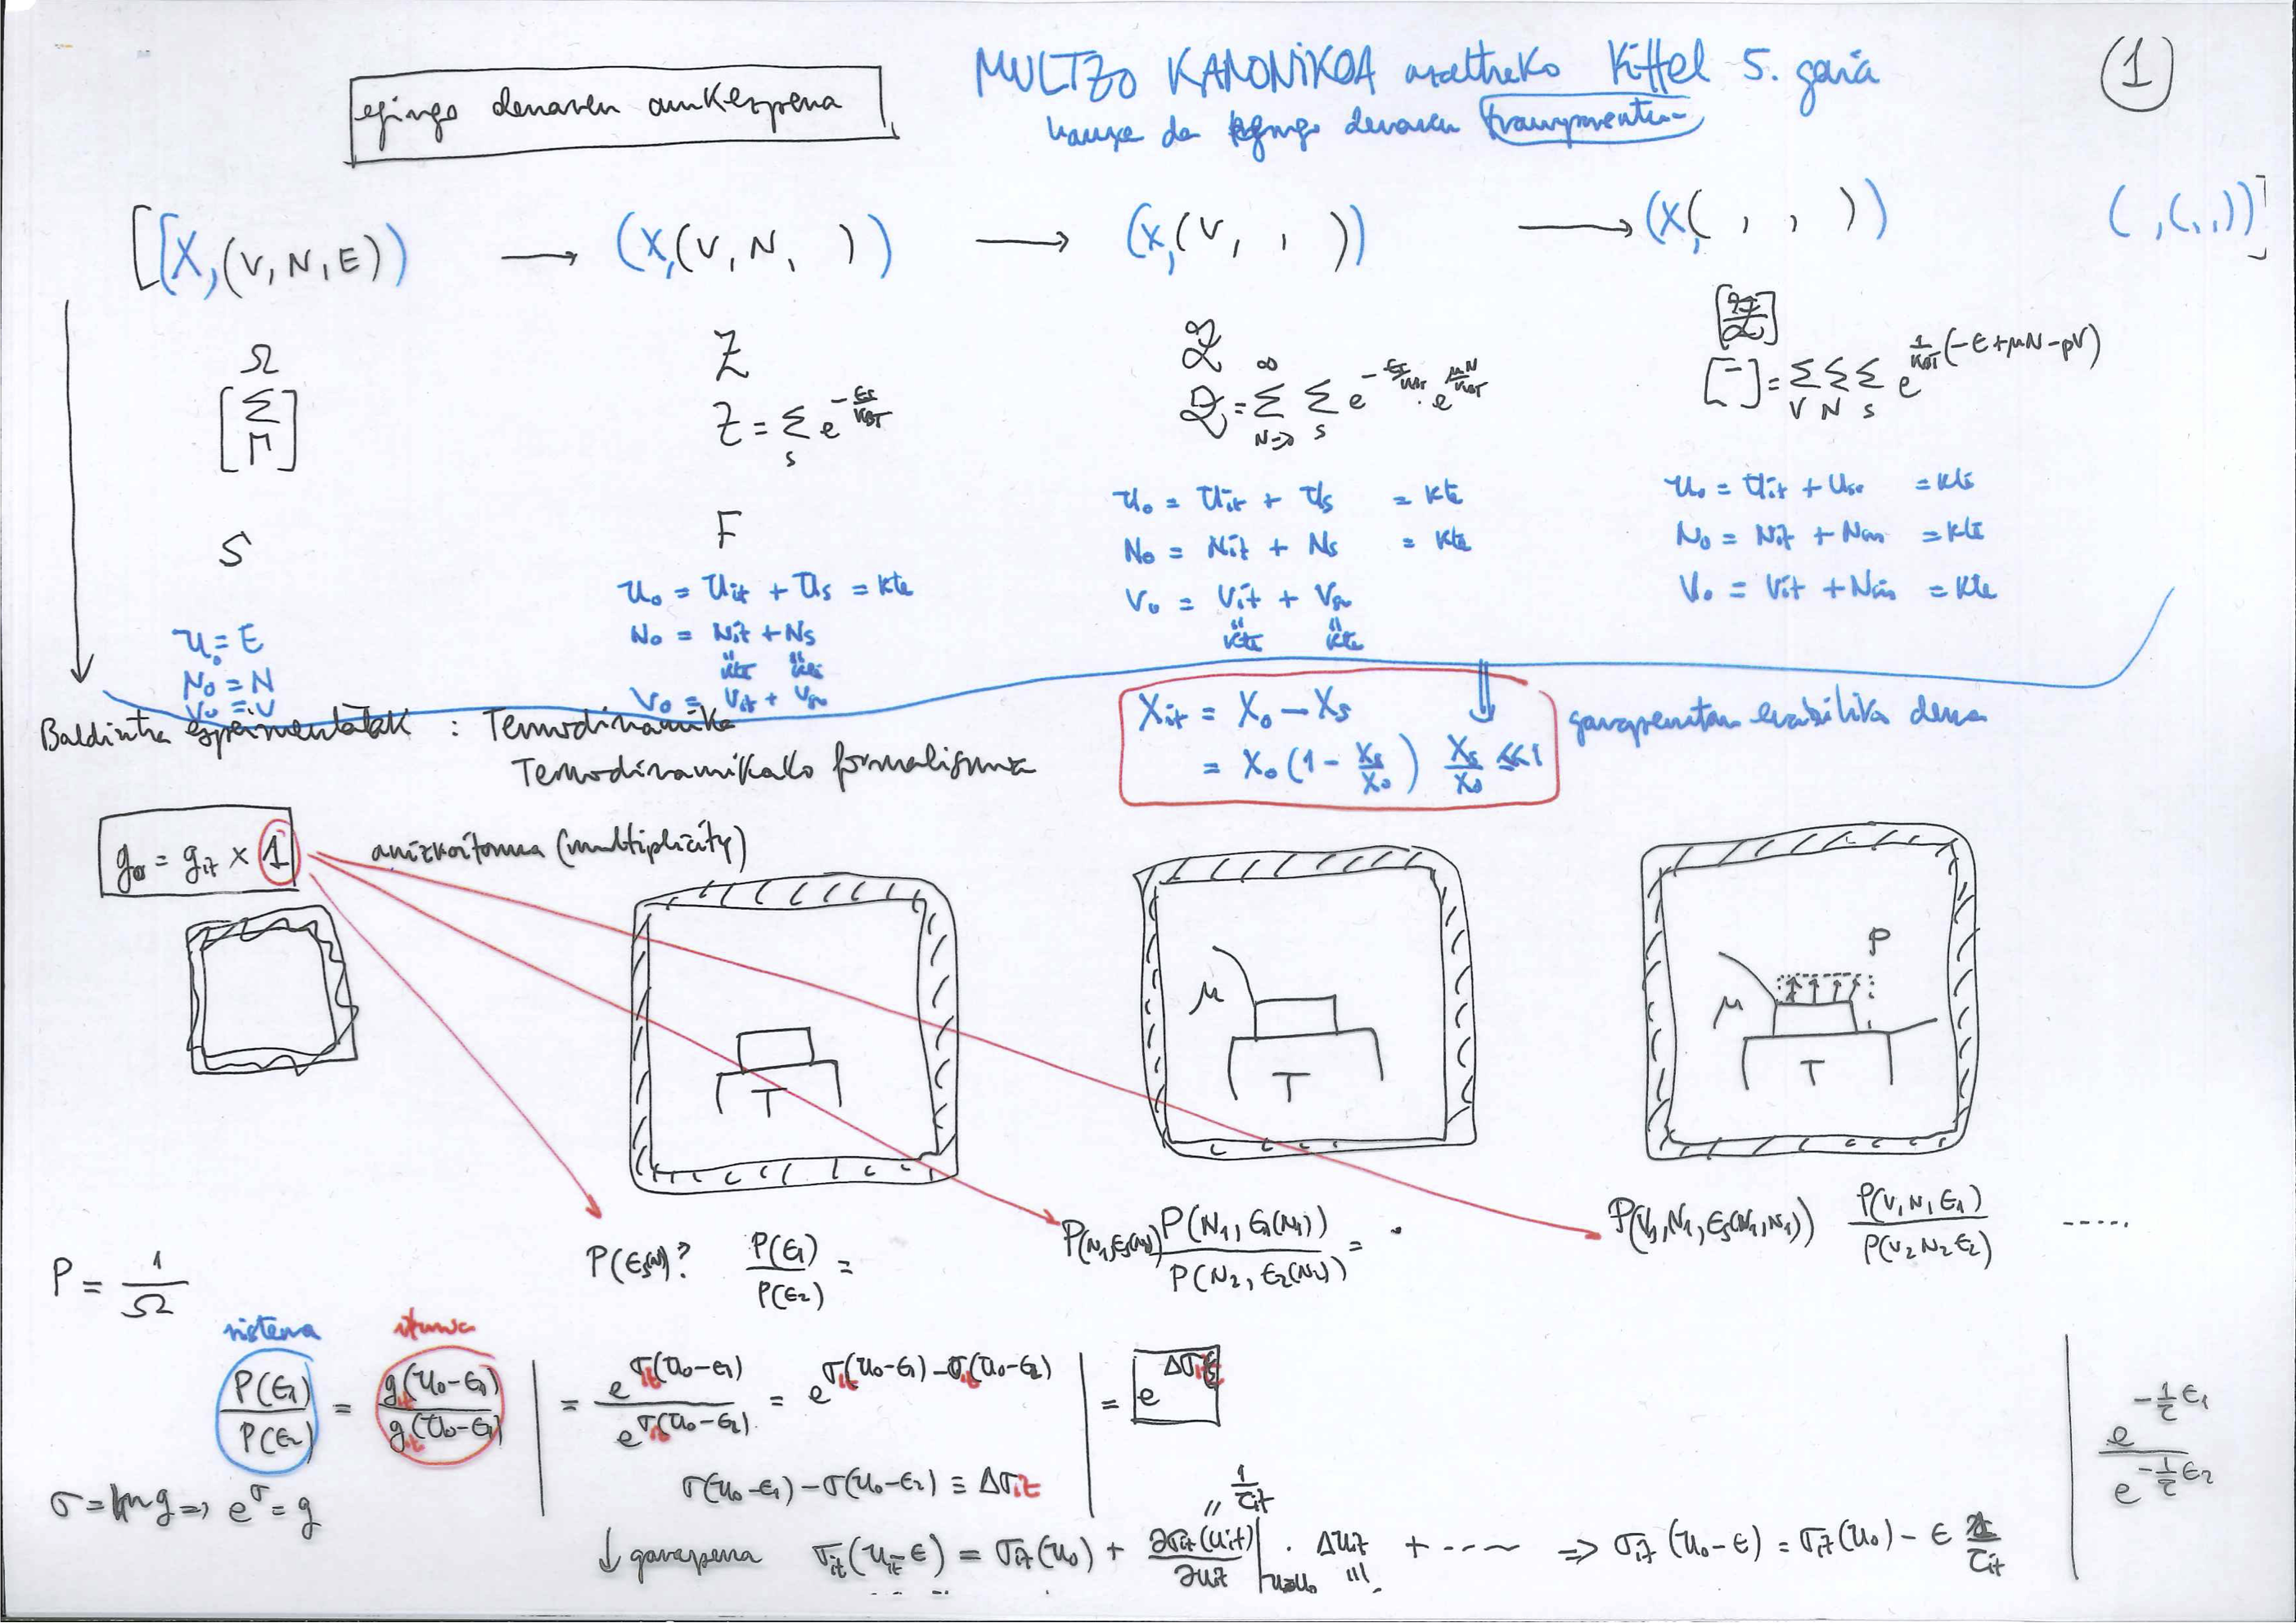 egingo denaren aurkezpena
MULTZO KANONIKOA Kittel 5. gaia
hauxe da egingo denaren
1
[(X,(V,N,E)) → (X,(V,N, )) → (X,(V, , )) → (X,( , , )) ( ,( , , ))]
Ω
Z
S
F
Z = Σ_s e^{-εs/k_BT}
= Σ_{N=0}^{∞} Σ_s e^{-εs/k_BT} · e^{μN/k_BT}
[ ] = Σ_V Σ_N Σ_s e^{1/k_BT (-ε+μN-pV)}
U₀ = E
N₀ = N
V₀ = V
U₀ = U_it + U_s = kte
N₀ = N_it + N_s
kte kte
V₀ = V_it + V_s
U₀ = U_it + U_s = kte
N₀ = N_it + N_s = kte
V₀ = V_it + V_s
kte kte
U₀ = U_it + U_s = kte
N₀ = N_it + N_sis = kte
V₀ = V_it + N_sis = kte
Baldintza esperimentalak : Termodinamika
Termodinamikako formalismoa
X_it = X₀ - X_s
= X₀ (1 - X_s/X₀) X_s/X₀ ≪ 1
garapenetan erabiliko dena
g₀ = g_it × 1
anizkoiztasuna (multiplicity)
T
μ
T
μ
p
T
P = 1/Ω
P(ε_s(N))? P(ε₁)/P(ε₂) =
P(N₁,ε_s(N₁)) P(N₁, ε₁(N₁))/P(N₂, ε₂(N₂)) =
P(V₁,N₁,ε_s(V₁,N₁)) P(V₁N₁ε₁)/P(V₂N₂ε₂) .....
sistema
iturria
P(ε₁)/P(ε₂) = g_it(U₀-ε₁)/g_it(U₀-ε₁) = e^{σ_it(U₀-ε₁)}/e^{σ_it(U₀-ε₂)} = e^{σ_it(U₀-ε₁)-σ_it(U₀-ε₂)} = e^{Δσ_it}
e^{-1/τ ε₁}/e^{-1/τ ε₂}
σ(U₀-ε₁) - σ(U₀-ε₂) ≡ Δσ_it
σ = ln g => e^σ = g
1/τ_it
↓ garapena σ_it(U_it-ε) = σ_it(U₀) + ∂σ_it(U_it)/∂U_it |_{U=U₀} · ΔU_it + ---- => σ_it(U₀-ε) = σ_it(U₀) - ε 1/τ_it